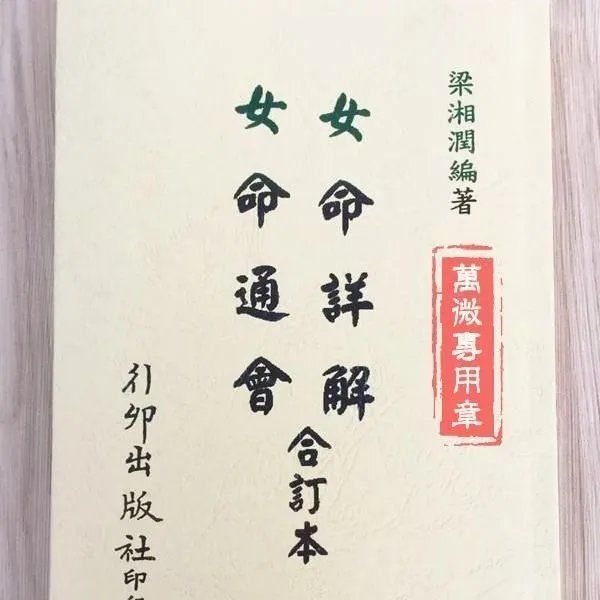 梁湘潤編著
萬微專用章
女命詳解
女命通會
合訂本
行卯出版社印